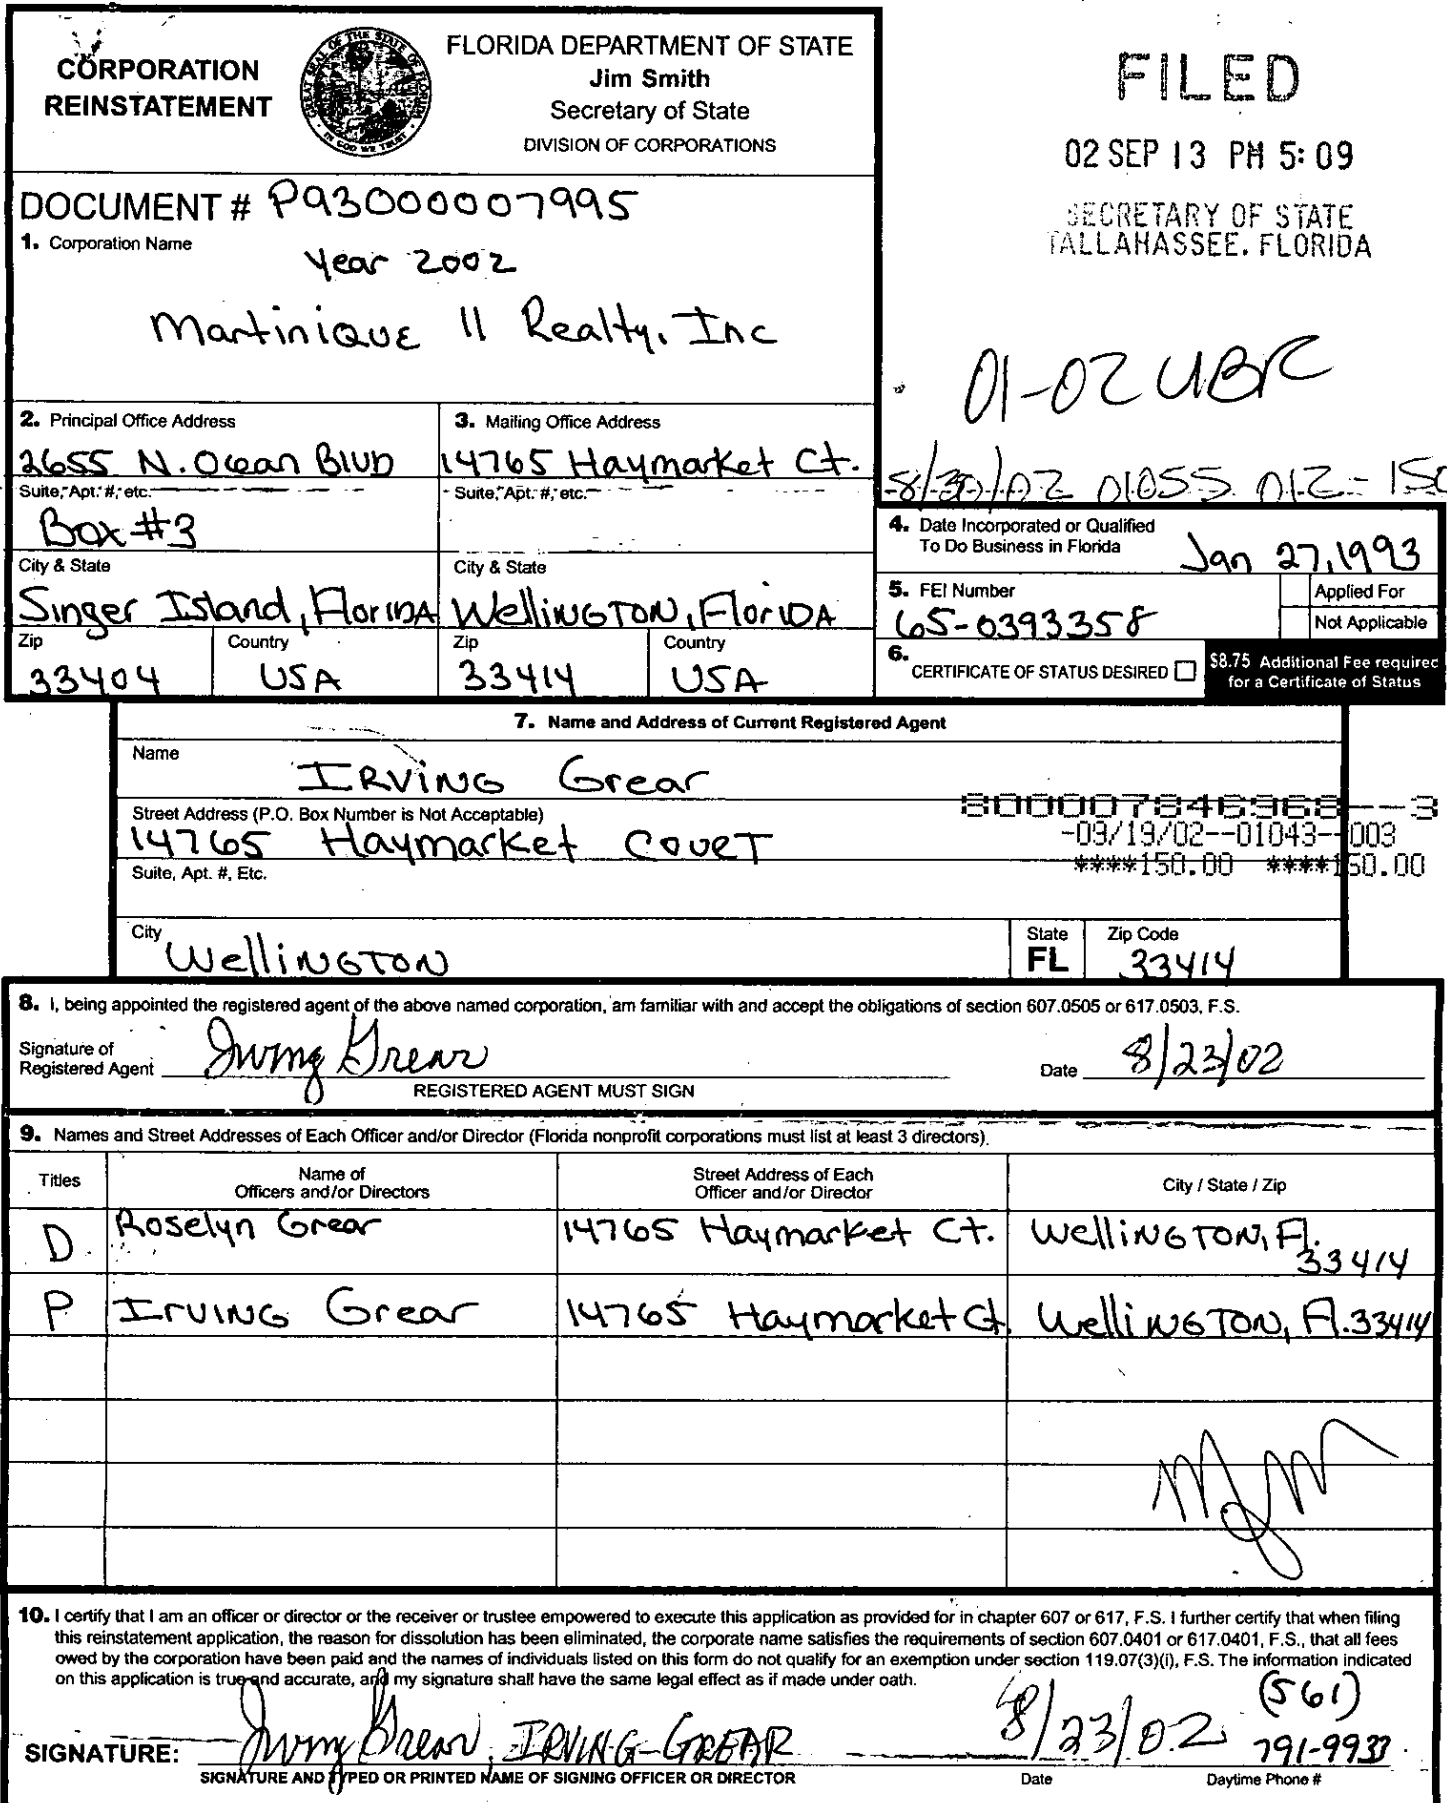 CORPORATION
REINSTATEMENT
FLORIDA DEPARTMENT OF STATE
Jim Smith
Secretary of State
DIVISION OF CORPORATIONS
GREAT SEAL OF THE STATE OF FLORIDA
IN GOD WE TRUST
FILED
02 SEP 13 PM 5:09
SECRETARY OF STATE
TALLAHASSEE, FLORIDA
DOCUMENT # P93000007995
1. Corporation Name
Year 2002
Martinique II Realty, Inc
01-02 UBR
8/30/02 01055 012 - 150
2. Principal Office Address
2655 N. Ocean Blvd
Suite, Apt. #, etc.
Box #3
City & State
Singer Island, Florida
Zip
33404
Country
USA
3. Mailing Office Address
14765 Haymarket Ct.
Suite, Apt. #, etc.
City & State
Wellington, Florida
Zip
33414
Country
USA
4. Date Incorporated or Qualified
To Do Business in Florida
Jan 27, 1993
5. FEI Number
65-0393358
Applied For
Not Applicable
6.
CERTIFICATE OF STATUS DESIRED
$8.75 Additional Fee required
for a Certificate of Status
7. Name and Address of Current Registered Agent
Name
IRVING Grear
Street Address (P.O. Box Number is Not Acceptable)
14765 Haymarket Court
Suite, Apt. #, Etc.
800007846968--3
-09/19/02--01043--003
****150.00 ****150.00
City
Wellington
State
FL
Zip Code
33414
8. I, being appointed the registered agent of the above named corporation, am familiar with and accept the obligations of section 607.0505 or 617.0503, F.S.
Signature of
Registered Agent
Irving Grear
REGISTERED AGENT MUST SIGN
Date
8/23/02
9. Names and Street Addresses of Each Officer and/or Director (Florida nonprofit corporations must list at least 3 directors)
Titles
Name of
Officers and/or Directors
Street Address of Each
Officer and/or Director
City / State / Zip
D Roselyn Grear 14765 Haymarket Ct. Wellington, Fl.
33414
P Irving Grear 14765 Haymarket Ct. Wellington, Fl. 33414
10. I certify that I am an officer or director or the receiver or trustee empowered to execute this application as provided for in chapter 607 or 617, F.S. I further certify that when filing
this reinstatement application, the reason for dissolution has been eliminated, the corporate name satisfies the requirements of section 607.0401 or 617.0401, F.S., that all fees
owed by the corporation have been paid and the names of individuals listed on this form do not qualify for an exemption under section 119.07(3)(i), F.S. The information indicated
on this application is true and accurate, and my signature shall have the same legal effect as if made under oath.
SIGNATURE:
Irving Grear, IRVING GREAR
8/23/02
(561)
791-9933
SIGNATURE AND TYPED OR PRINTED NAME OF SIGNING OFFICER OR DIRECTOR
Date
Daytime Phone #